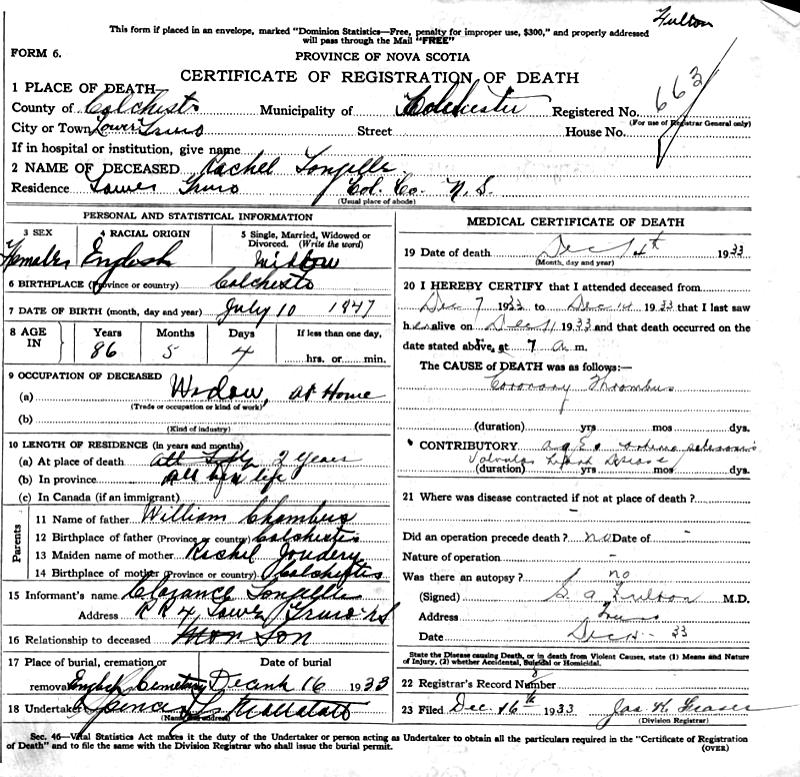 Fulton
This form if placed in an envelope, marked "Dominion Statistics—Free, penalty for improper use, $300," and properly addressed
will pass through the Mail "FREE"
FORM 6.
PROVINCE OF NOVA SCOTIA
CERTIFICATE OF REGISTRATION OF DEATH
1 PLACE OF DEATH
County of Colchester Municipality of Colchester Registered No. 663
(For use of Registrar General only)
City or Town Lower Truro Street House No.
If in hospital or institution, give name
2 NAME OF DECEASED Rachel
Residence Lower Truro Col. Co. N. S.
(Usual place of abode)
PERSONAL AND STATISTICAL INFORMATION
3 SEX 4 RACIAL ORIGIN 5 Single, Married, Widowed or
Divorced. (Write the word)
Female English widow
6 BIRTHPLACE (Province or country) Colchester
7 DATE OF BIRTH (month, day and year) July 10 1847
8 AGE IN Years Months Days If less than one day,
86 5 4 hrs. or min.
9 OCCUPATION OF DECEASED
(a) Widow, at Home
(Trade or occupation or kind of work)
(b)
(Kind of industry)
10 LENGTH OF RESIDENCE (in years and months)
(a) At place of death 2 years
(b) In province all her life
(c) In Canada (if an immigrant)
Parents
11 Name of father William Chambers
12 Birthplace of father (Province or country) Colchester
13 Maiden name of mother Rachel
14 Birthplace of mother (Province or country) Colchester
15 Informant's name Clarance
Address R R 4, Lower Truro NS
16 Relationship to deceased Son
17 Place of burial, cremation or Date of burial
removal Cemetary 16 1933
18 Undertaker
(Name and address)
MEDICAL CERTIFICATE OF DEATH
19 Date of death Dec 14th 1933
(Month, day and year)
20 I HEREBY CERTIFY that I attended deceased from
Dec 7 1933 to Dec 14 1933 that I last saw
her alive on Dec 11 1933 and that death occurred on the
date stated above, at 7 a m.
The CAUSE OF DEATH was as follows:—
Coronary Thrombus
(duration) yrs mos dys.
CONTRIBUTORY age
Valvular Heart Disease
(duration) yrs mos dys.
21 Where was disease contracted if not at place of death?
Did an operation precede death? no Date of -
Nature of operation -
Was there an autopsy? no
(Signed) Fulton M.D.
Address Truro
Date Dec 33
State the Disease causing Death, or in death from Violent Causes, state (1) Means and Nature
of Injury, (2) whether Accidental, Suicidal or Homicidal.
22 Registrar's Record Number
23 Filed Dec. 16th 1933 Jas H. Fraser
(Division Registrar)
Sec. 46—Vital Statistics Act makes it the duty of the Undertaker or person acting as Undertaker to obtain all the particulars required in the "Certificate of Registration
of Death" and to file the same with the Division Registrar who shall issue the burial permit. (OVER)